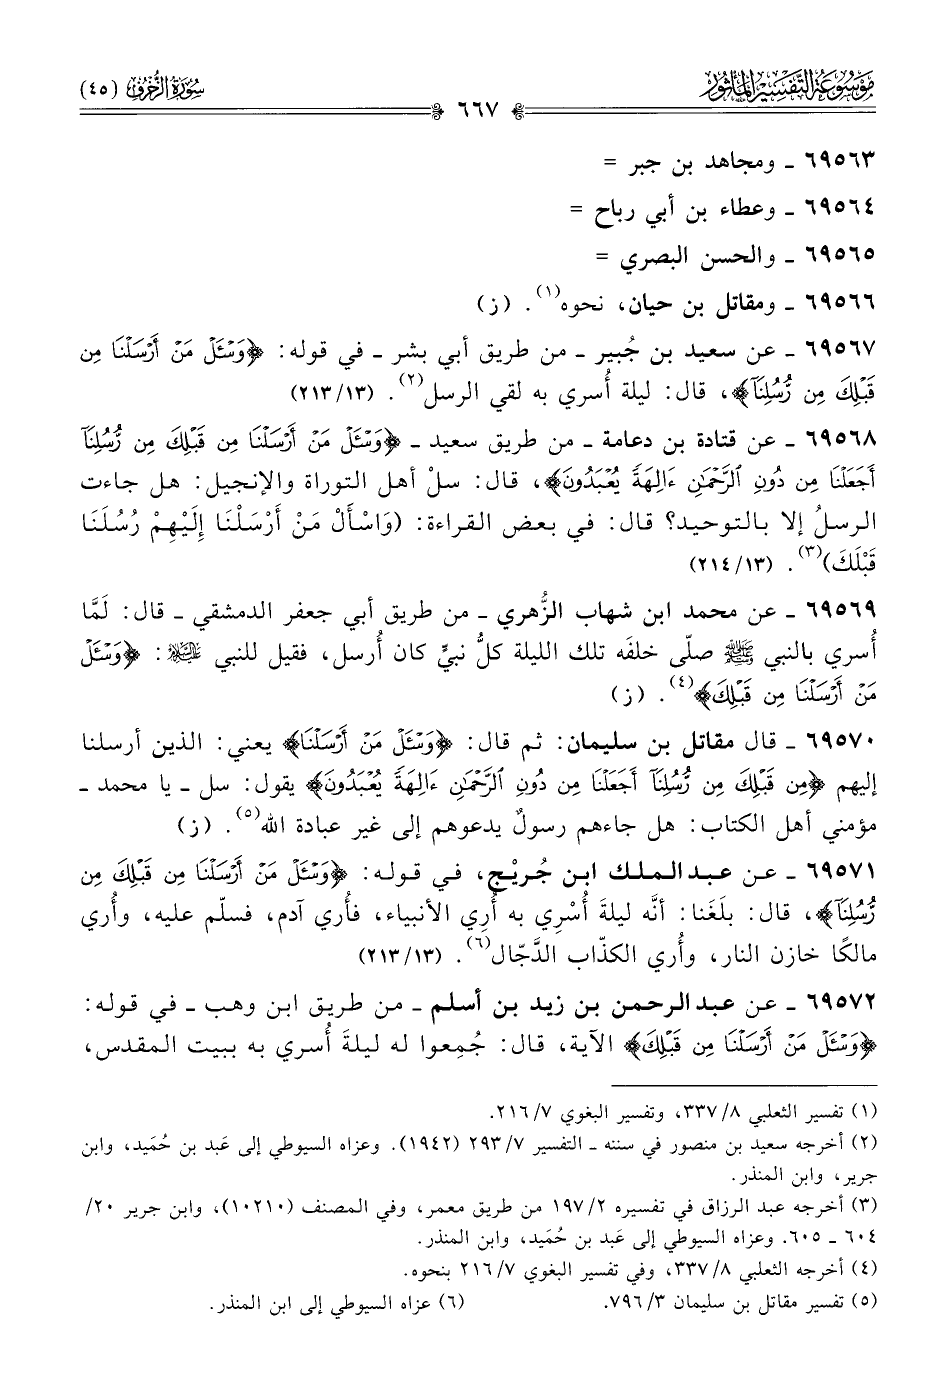 موسوعة التفسير المأثور
سورة الزخرف (٤٥)
٦٦٧
٦٩٥٦٣ ـ ومجاهد بن جبر =
٦٩٥٦٤ ـ وعطاء بن أبي رباح =
٦٩٥٦٥ ـ والحسن البصري =
٦٩٥٦٦ ـ ومقاتل بن حيان، نحوه(١). (ز)
٦٩٥٦٧ ـ عن سعيد بن جُبير ـ من طريق أبي بشر ـ في قوله: ﴿وَسْـَٔلْ مَنْ أَرْسَلْنَا مِن
قَبْلِكَ مِن رُّسُلِنَآ﴾، قال: ليلة أُسري به لقي الرسل(٢). (٢١٣/١٣)
٦٩٥٦٨ ـ عن قتادة بن دعامة ـ من طريق سعيد ـ ﴿وَسْـَٔلْ مَنْ أَرْسَلْنَا مِن قَبْلِكَ مِن رُّسُلِنَآ
أَجَعَلْنَا مِن دُونِ ٱلرَّحْمَٰنِ ءَالِهَةً يُعْبَدُونَ﴾، قال: سلْ أهل التوراة والإنجيل: هل جاءت
الرسلُ إلا بالتوحيد؟ قال: في بعض القراءة: (وَاسْأَلْ مَنْ أَرْسَلْنَا إِلَيْهِمْ رُسُلَنَا
قَبْلَكَ)(٣). (٢١٤/١٣)
٦٩٥٦٩ ـ عن محمد ابن شهاب الزُّهري ـ من طريق أبي جعفر الدمشقي ـ قال: لَمَّا
أُسري بالنبي ﷺ صلّى خلفَه تلك الليلة كلُّ نبيٍّ كان أُرسل، فقيل للنبي عليه السلام: ﴿وَسْـَٔلْ
مَنْ أَرْسَلْنَا مِن قَبْلِكَ﴾(٤). (ز)
٦٩٥٧٠ ـ قال مقاتل بن سليمان: ثم قال: ﴿وَسْـَٔلْ مَنْ أَرْسَلْنَا﴾ يعني: الذين أرسلنا
إليهم ﴿مِن قَبْلِكَ مِن رُّسُلِنَآ أَجَعَلْنَا مِن دُونِ ٱلرَّحْمَٰنِ ءَالِهَةً يُعْبَدُونَ﴾ يقول: سل ـ يا محمد ـ
مؤمني أهل الكتاب: هل جاءهم رسولٌ يدعوهم إلى غير عبادة الله(٥). (ز)
٦٩٥٧١ ـ عن عبد الملك ابن جُريْج، في قوله: ﴿وَسْـَٔلْ مَنْ أَرْسَلْنَا مِن قَبْلِكَ مِن
رُّسُلِنَآ﴾، قال: بلَغَنا: أنَّه ليلةَ أُسْرِي به أُرِي الأنبياء، فأُري آدم، فسلّم عليه، وأُري
مالكًا خازن النار، وأُري الكذّاب الدَّجّال(٦). (٢١٣/١٣)
٦٩٥٧٢ ـ عن عبد الرحمن بن زيد بن أسلم ـ من طريق ابن وهب ـ في قوله:
﴿وَسْـَٔلْ مَنْ أَرْسَلْنَا مِن قَبْلِكَ﴾ الآية، قال: جُمِعوا له ليلةَ أُسري به ببيت المقدس،
(١) تفسير الثعلبي ٣٣٧/٨، وتفسير البغوي ٢١٦/٧.
(٢) أخرجه سعيد بن منصور في سننه ـ التفسير ٢٩٣/٧ (١٩٤٢). وعزاه السيوطي إلى عَبد بن حُمَيد، وابن
جرير، وابن المنذر.
(٣) أخرجه عبد الرزاق في تفسيره ١٩٧/٢ من طريق معمر، وفي المصنف (١٠٢١٠)، وابن جرير ٢٠/
٦٠٤ ـ ٦٠٥. وعزاه السيوطي إلى عَبد بن حُمَيد، وابن المنذر.
(٤) أخرجه الثعلبي ٣٣٧/٨، وفي تفسير البغوي ٢١٦/٧ بنحوه.
(٥) تفسير مقاتل بن سليمان ٧٩٦/٣. (٦) عزاه السيوطي إلى ابن المنذر.